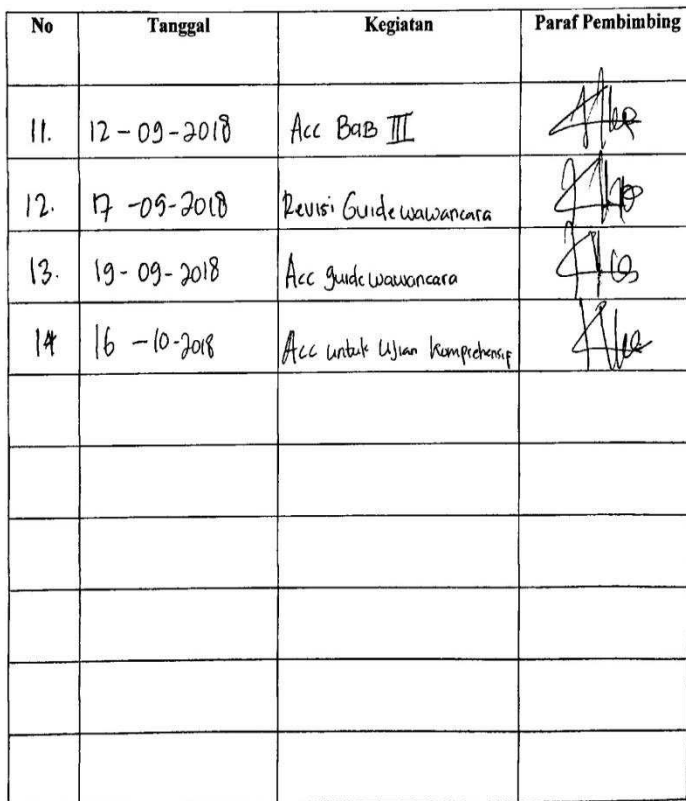 No Tanggal Kegiatan Paraf Pembimbing
11. 12-09-2018 Acc BaB III
12. 17-09-2018 Revisi Guide wawancara
13. 19-09-2018 Acc guide wawancara
14 16-10-2018 Acc untuk Ujian Komprehensif